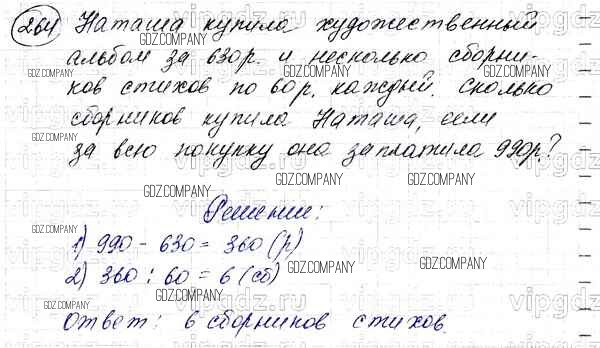 264 Наташа купила художественный
альбом за 630р. и несколько сборни-
ков стихов по 60р. каждый. Сколько
сборников купила Наташа, если
за всю покупку она заплатила 990р?
Решение:
1) 990 - 630 = 360 (р)
2) 360 : 60 = 6 (сб)
Ответ: 6 сборников стихов
GDZ.COMPANY
vipgdz.ru